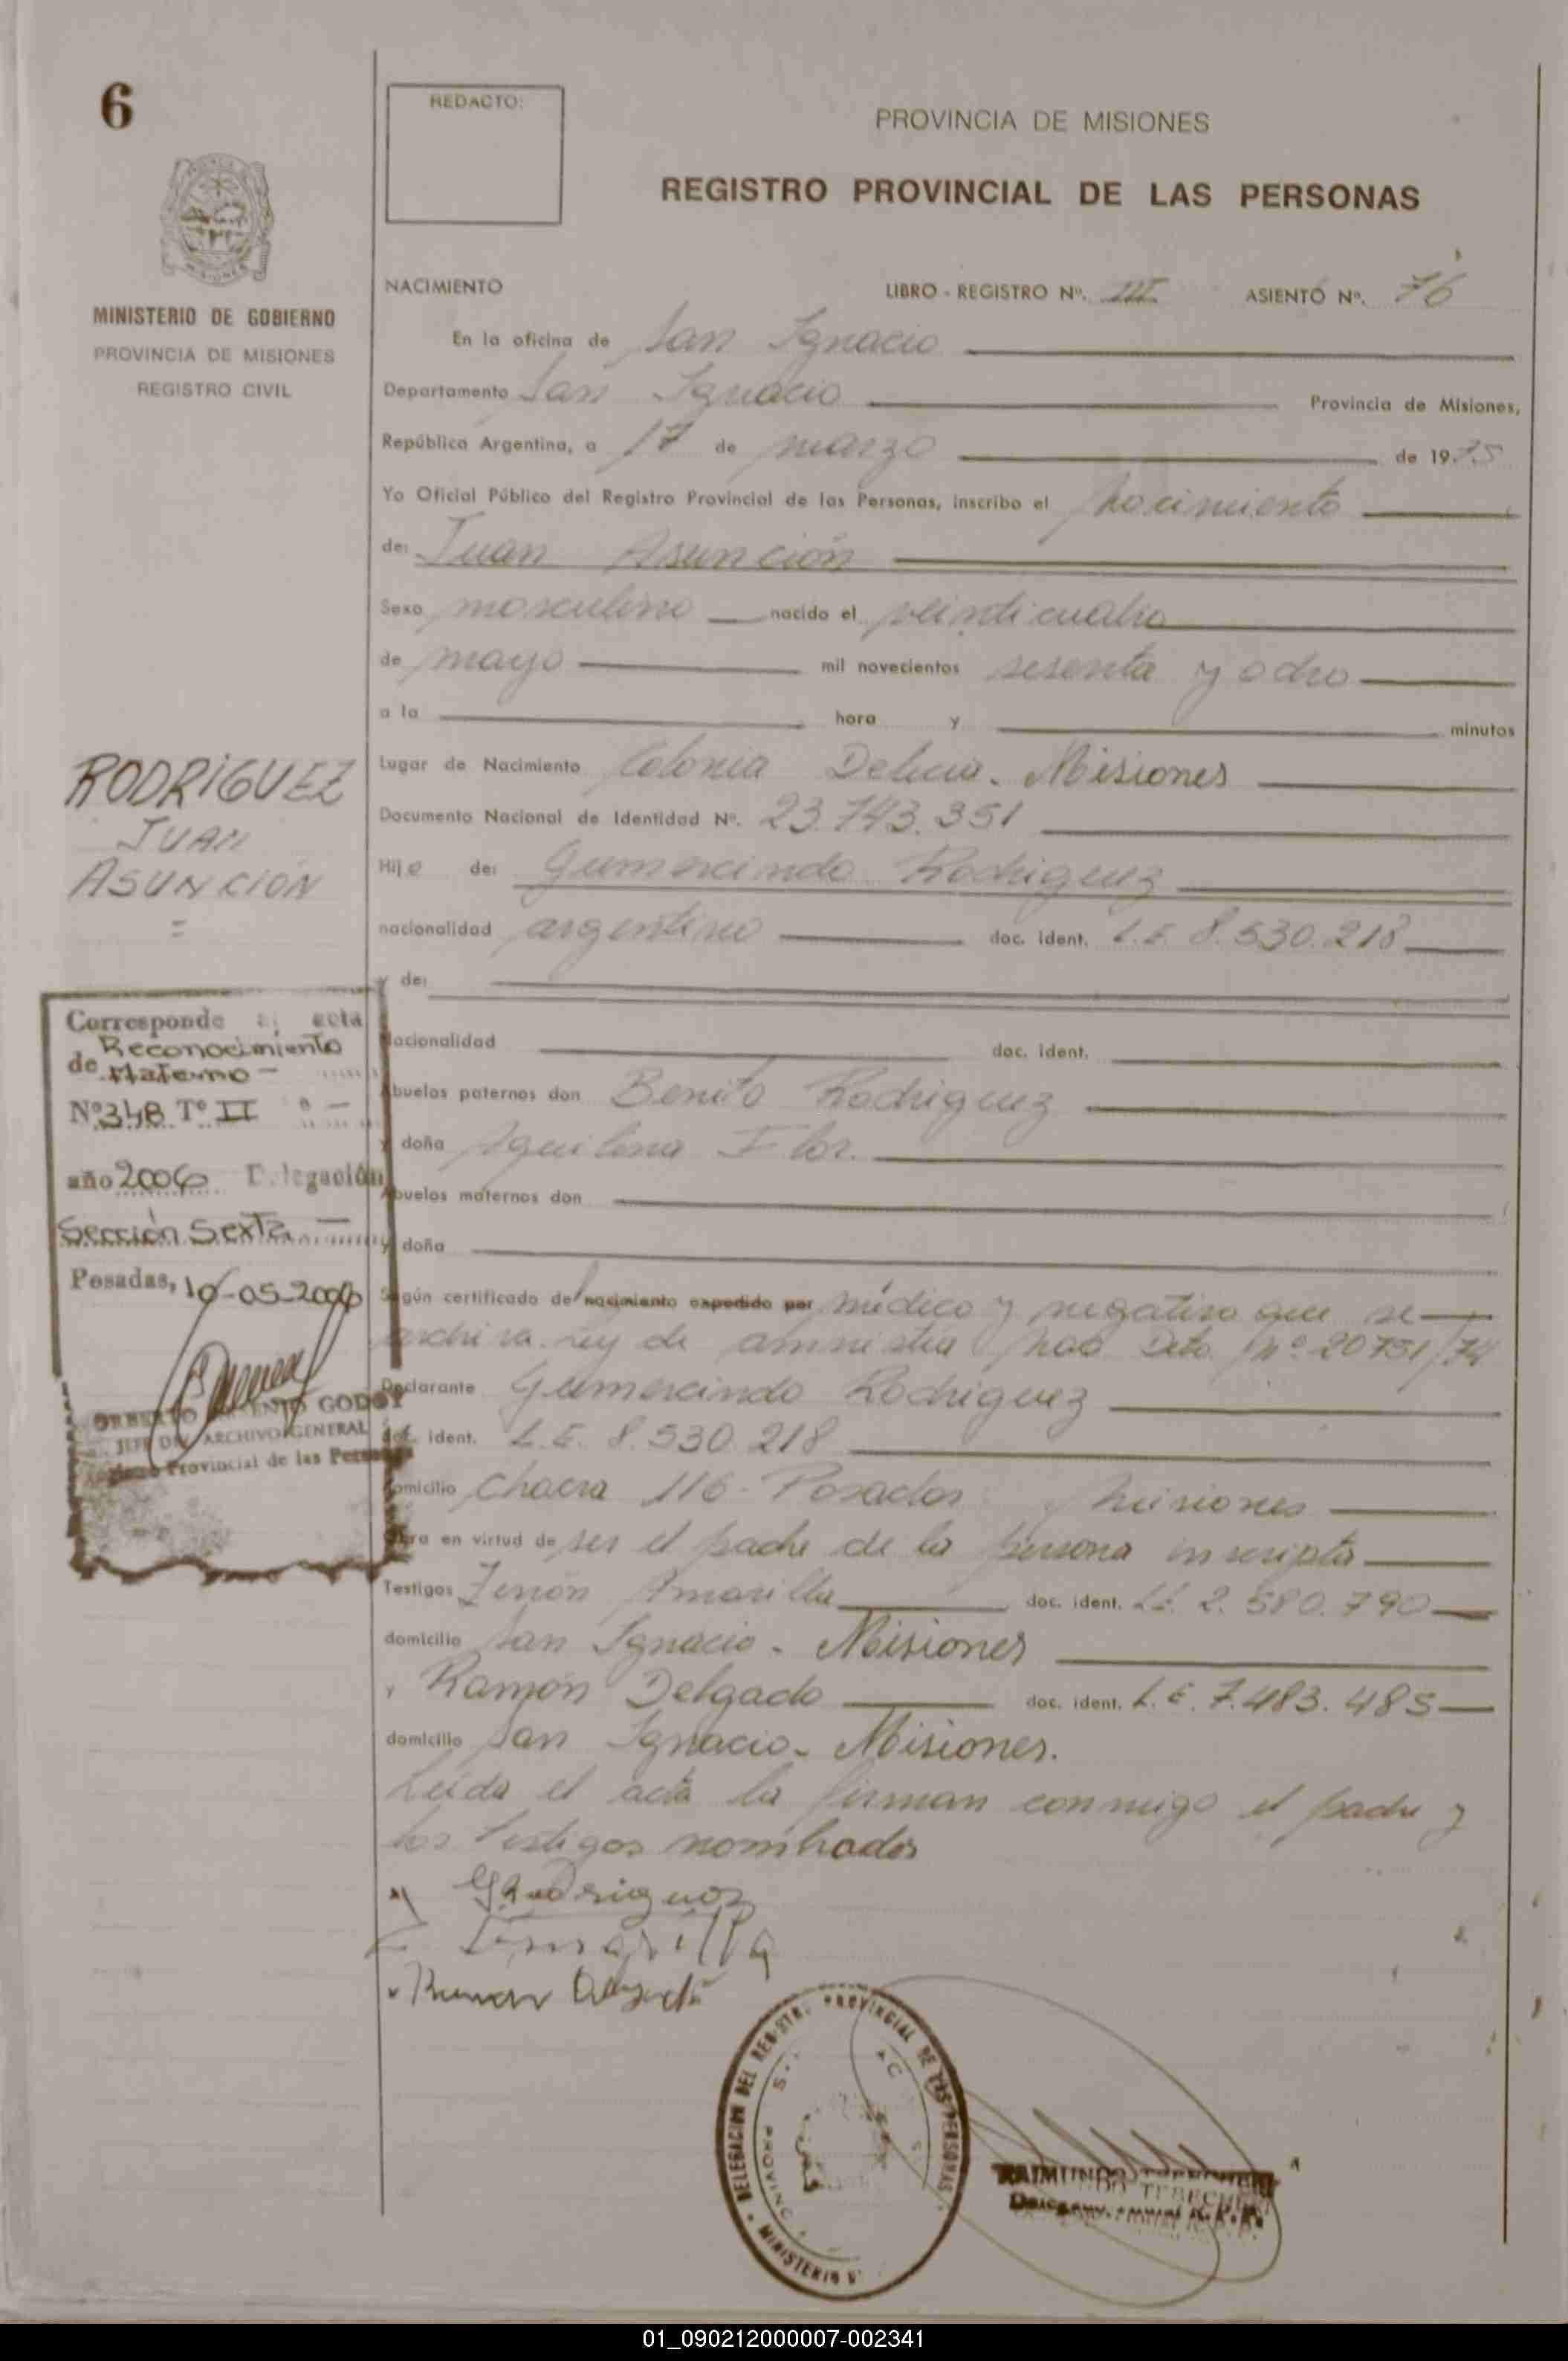 6
REDACTO:
PROVINCIA DE MISIONES
REGISTRO PROVINCIAL DE LAS PERSONAS
MINISTERIO DE GOBIERNO
PROVINCIA DE MISIONES
REGISTRO CIVIL
NACIMIENTO LIBRO - REGISTRO Nº. III ASIENTO Nº. 76
En la oficina de San Ignacio
Departamento San Ignacio Provincia de Misiones,
República Argentina, a 17 de marzo de 1975
Yo Oficial Público del Registro Provincial de las Personas, inscribo el nacimiento
de: Juan Asunción
Sexo masculino nacido el veinticuatro
de mayo mil novecientos sesenta y ocho
a la hora y minutos
Lugar de Nacimiento Colonia Delicia - Misiones
Documento Nacional de Identidad Nº. 23.743.351
Hijo de: Gumercindo Rodriguez
nacionalidad argentino doc. ident. L.E. 8.530.218
y de:
Nacionalidad doc. ident.
Abuelos paternos don Benito Rodriguez
y doña Aquilina Flor.
Abuelos maternos don
y doña
Según certificado de nacimiento expedido por médico y negativo que se
archiva. Ley de amnistia Nac. Dto. Nº 20751/74
Declarante Gumercindo Rodriguez
doc. ident. L.E. 8.530.218
domicilio Chacra 116 - Posadas Misiones
Obra en virtud de ser el padre de la persona inscripta
Testigos Zenón Amarilla doc. ident. L.E. 2.580.790
domicilio San Ignacio - Misiones
y Ramón Delgado doc. ident. L.E. 7.483.485
domicilio San Ignacio - Misiones.
Leída el acta la firman conmigo el padre y
los testigos nombrados
RODRÍGUEZ
JUAN
ASUNCION
=
Corresponde al acta
de Reconocimiento
Materno -
Nº 348 Tº II
año 2006 Delegación
Sección Sexta
Posadas, 10-05-2006
GODOY
JEFE DEL ARCHIVO GENERAL
Provincial de las Personas
DELEGACION DEL REGISTRO PROVINCIAL DE LAS PERSONAS
MINISTERIO
RAIMUNDO
01_090212000007-002341